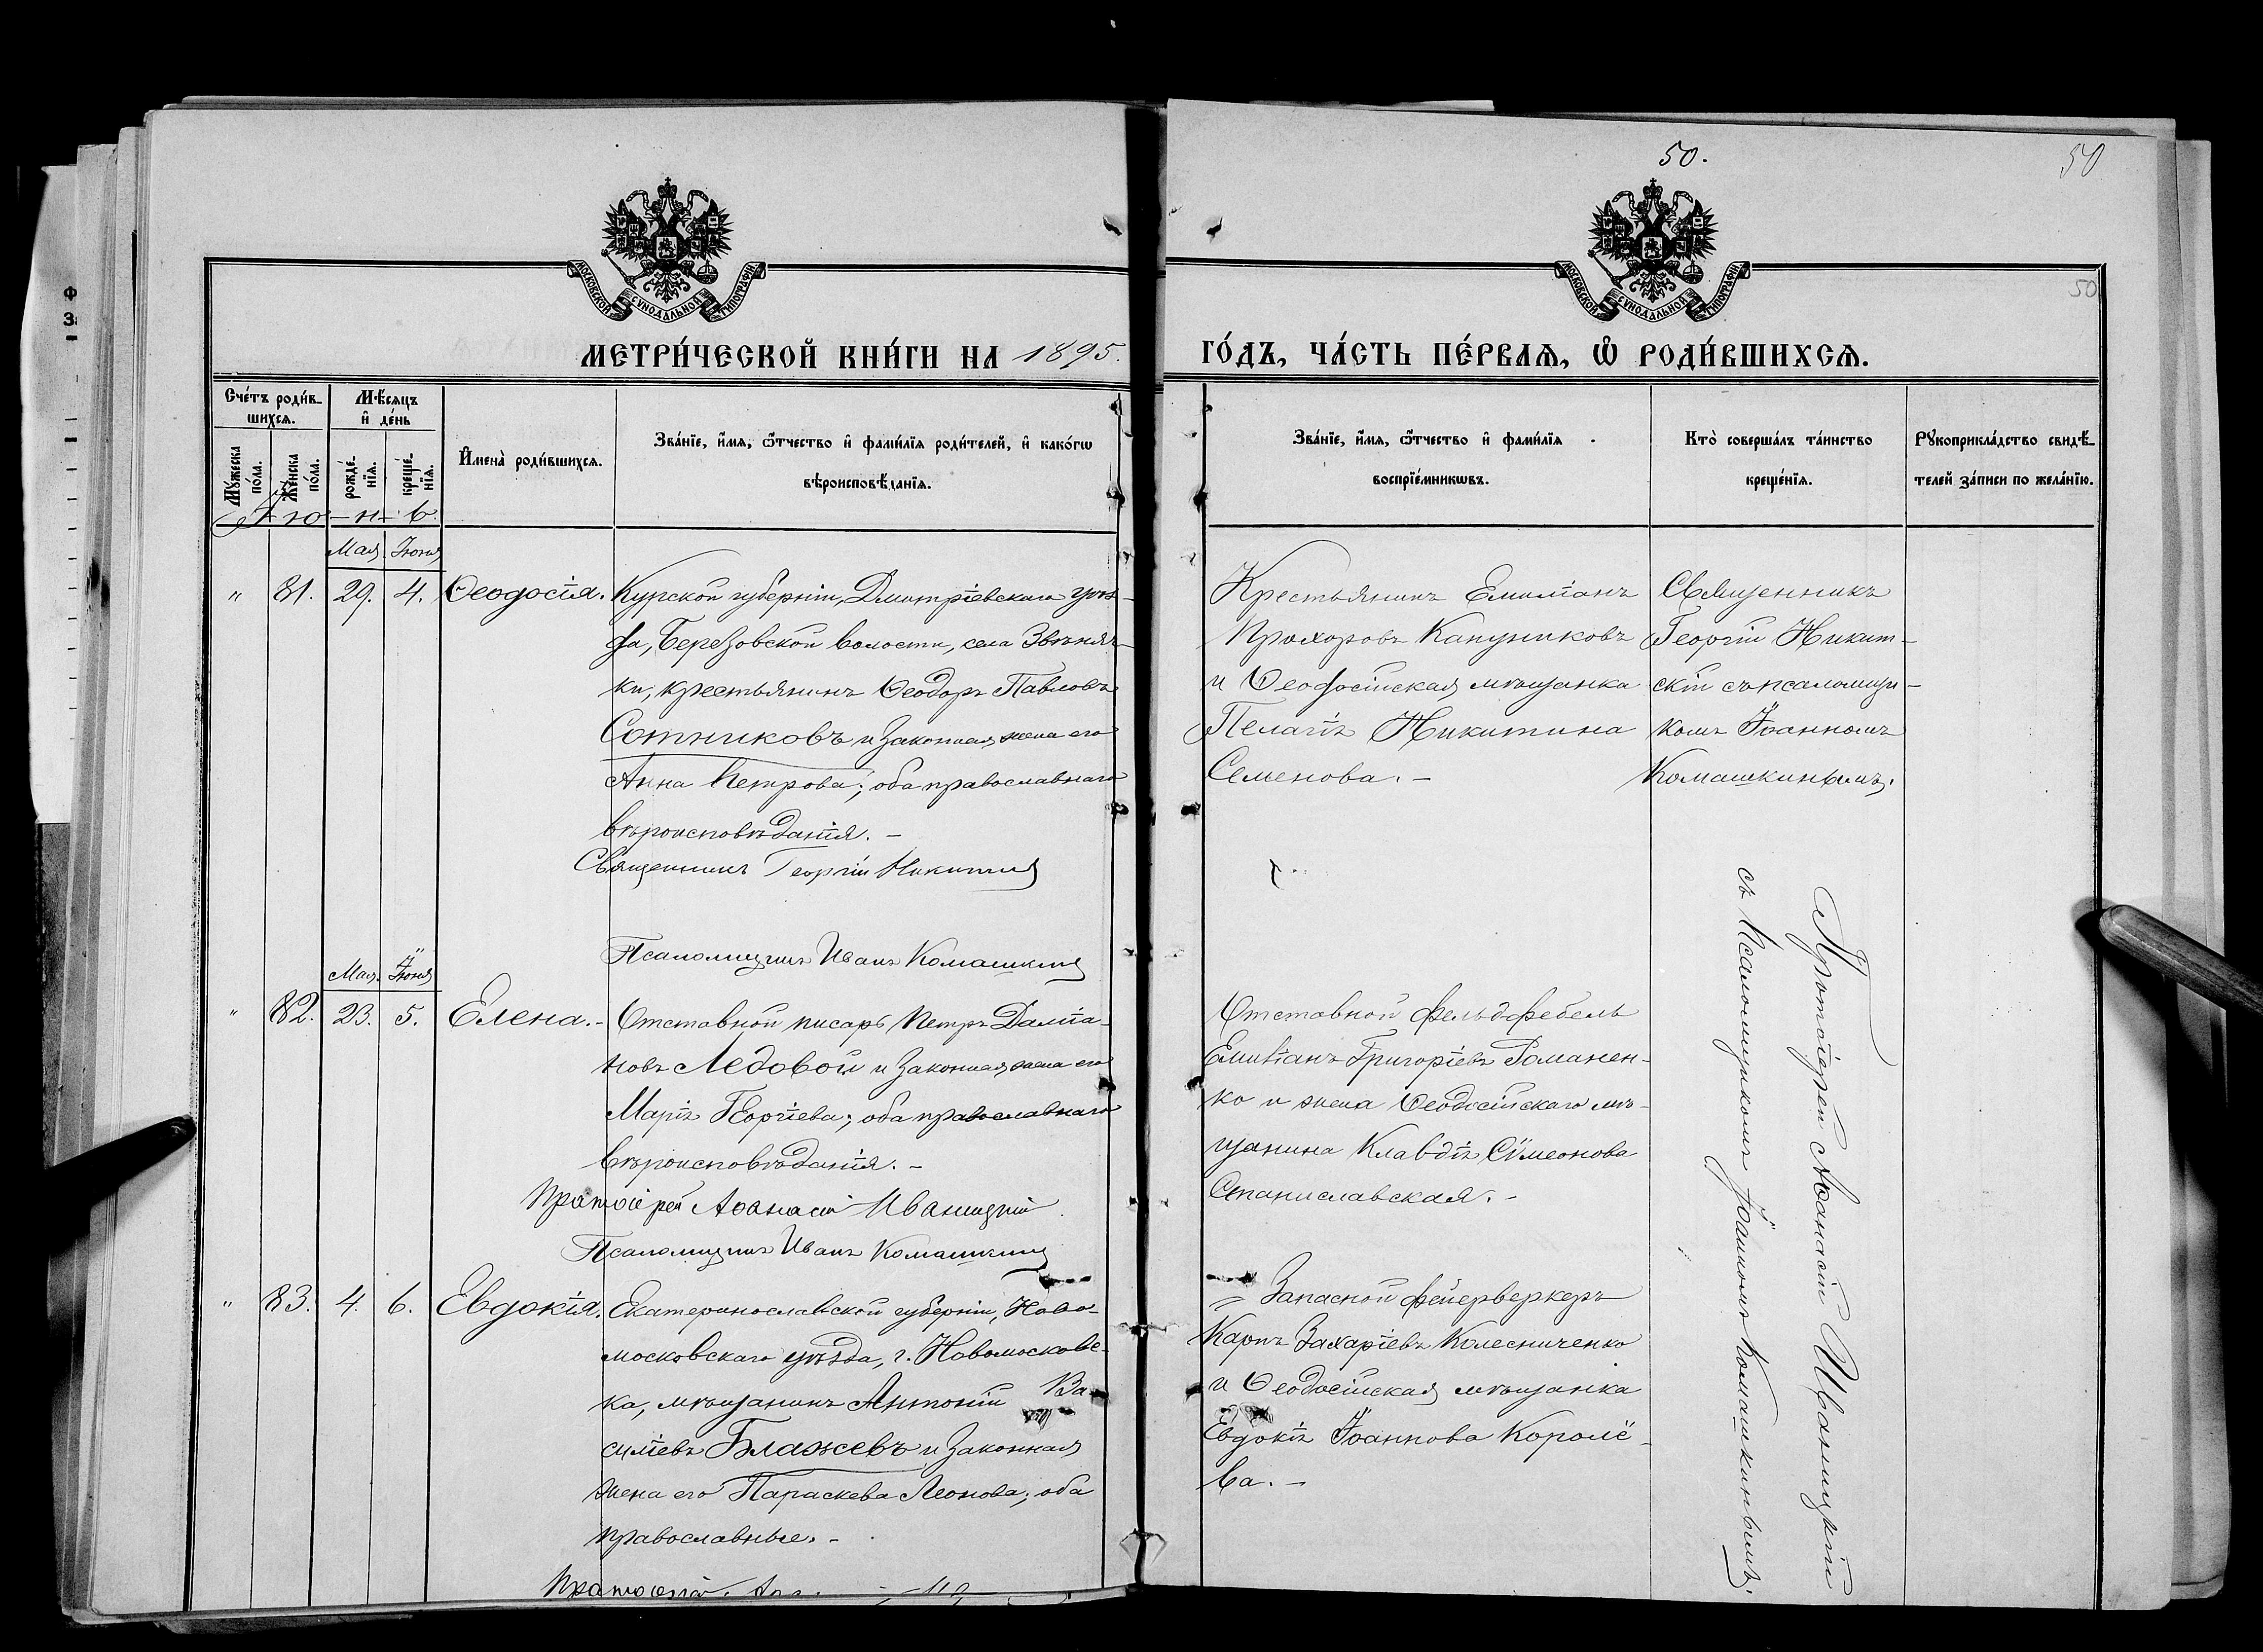 50.
50
50
МОСКОВСКОЙ СѴНОДАЛЬНОЙ ТИПОГРАФІИ
МОСКОВСКОЙ СѴНОДАЛЬНОЙ ТИПОГРАФІИ
МЕТРИ́ЧЕСКОЙ КНИ́ГИ НА 1895. ГО́ДЪ, ЧА́СТЬ ПЕ́РВАѦ, Ѡ҆ РОДИ́ВШИХСѦ.
Сче́тъ роди́в-
шихсѧ.
Мѣ́сяцъ
и҆ де́нь
Мꙋ́жеска
по́ла.
Же́нска
по́ла.
рожде́-
нїѧ.
креще́-
нїѧ.
И҆мена̀ роди́вшихсѧ.
Зва́нїе, и҆́мѧ, ѻ҆́тчество и҆ фами́лїѧ роди́телей, и҆ како́гѡ
вѣроисповѣ́данїѧ.
Зва́нїе, и҆́мѧ, ѻ҆́тчество и҆ фами́лїѧ
воспрїе́мникѡвъ.
Кто̀ соверша́лъ та́инство
креще́нїѧ.
Рꙋкоприкла́дство свидѣ́-
телей за́писи по жела́нїю.
Ію-н-ь
Мая Іюня
" 81. 29. 4. Ѳеодосія.
Курской губерніи, Дмитріевскаго уѣз-
да, Березовской волости, села Звѣняч-
ки, крестьянинъ Ѳеодоръ Павловъ
Сотниковъ и законная жена его
Анна Петрова; оба православнаго
вѣроисповѣданія. –
Священникъ Георгій Никитскій
Псаломщикъ Иванъ Комашкинъ
Крестьянинъ Емиліанъ
Прохоровъ Капуниковъ
и Ѳеодосійская мѣщанка
Пелагія Никитина
Семенова. –
Священникъ
Георгій Никит-
скій съ псаломщи-
комъ Іоанномъ
Комашкинымъ.
Мая Іюня
" 82. 23. 5. Елена. –
Отставной писарь Петръ Даміа-
новъ Ледовой и законная жена его
Марія Георгіева; оба православнаго
вѣроисповѣданія. –
Протоіерей Аѳанасій Иваницкій
Псаломщикъ Иванъ Комашкинъ
Отставной фельдфебель
Емиліанъ Григоріевъ Романен-
ко и жена Ѳеодосійскаго мѣ-
щанина Клавдія Сѵмеонова
Станиславская. –
Протоіерей Аѳанасій Иваницкій
съ Псаломщикомъ Іоанномъ Комашкинымъ.
" 83. 4. 6. Евдокія.
Екатеринославской губерніи, Ново-
московскаго уѣзда, г. Новомосковс-
ка, мѣщанинъ Антоній Ва-
силіевъ Блажевъ и законная
жена его Параскева Леонова; оба
православные. –
Протоіерей
Запасной фейерверкеръ
Карпъ Захаріевъ Колесниченко
и Ѳеодосійская мѣщанка
Евдокія Іоаннова Королё-
ва. –